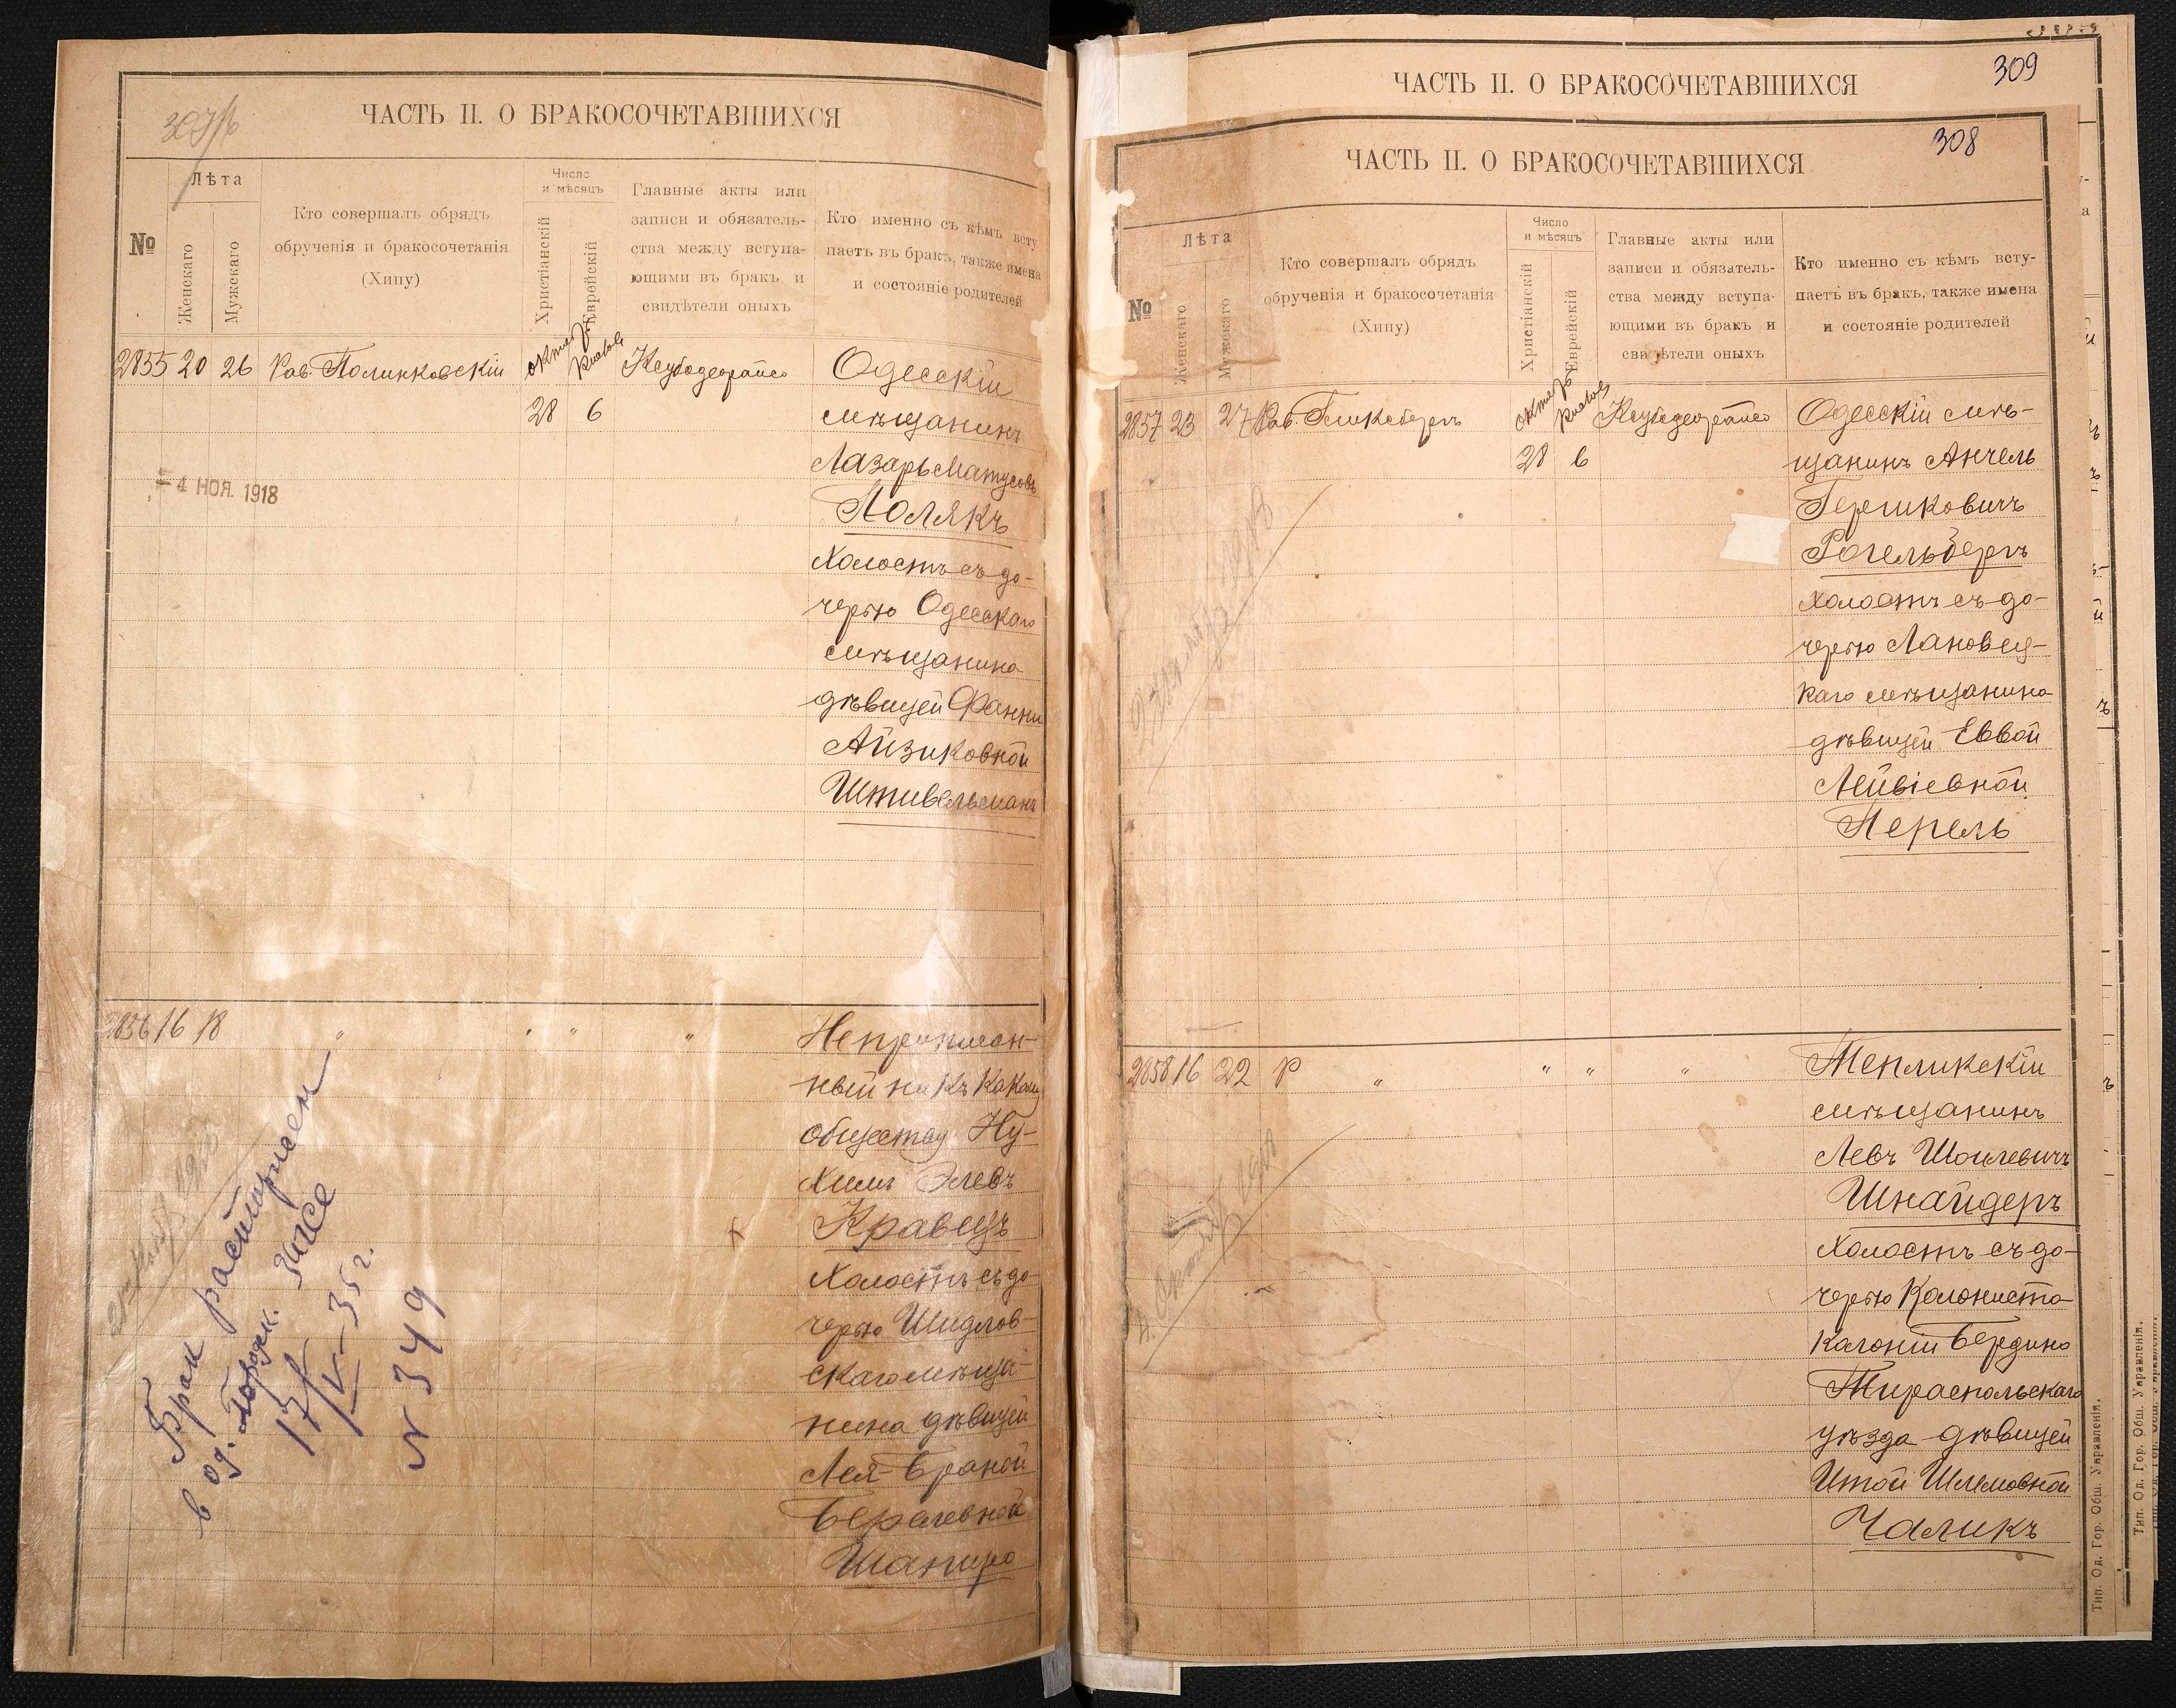 ЧАСТЬ II. О БРАКОСОЧЕТАВШИХСЯ
№
Лѣта
Женскаго
Мужскаго
Кто совершалъ обрядъ
обрученія и бракосочетанія
(Хипу)
Число
и мѣсяцъ
Христіанскій
Еврейскій
Главные акты или
записи и обязатель-
ства между вступа-
ющими въ бракъ и
свидѣтели оныхъ
Кто именно съ кѣмъ всту
паетъ въ бракъ, также имена
и состояніе родителей
2855 20 26 Рав. Полинковскій
28 6
4 НОЯ. 1918
Одесскій
мѣщанинъ
Лазарь Матусовъ
Полякъ
холостъ съ до-
черью Одесскаго
мѣщанина
дѣвицей Фанни
Айзиковной
Штивельманъ
2856 16 18 " " " "
Неприписан-
ный ни къ какому
обществу Ну-
химъ Элевъ
Кравецъ
холостъ съ до-
черью Шидлов-
скаго мѣща-
нина дѣвицей
Лея-Браной
Бералевной
Шапиро
Брак расторжен
в од. Городск. Загсе
17/V-35 г.
N 349
309
ЧАСТЬ II. О БРАКОСОЧЕТАВШИХСЯ
308
ЧАСТЬ II. О БРАКОСОЧЕТАВШИХСЯ
№
Лѣта
Женскаго
Мужскаго
Кто совершалъ обрядъ
обрученія и бракосочетанія
(Хипу)
Число
и мѣсяцъ
Христіанскій
Еврейскій
Главные акты или
записи и обязатель-
ства между вступа-
ющими въ бракъ и
свидѣтели оныхъ
Кто именно съ кѣмъ всту-
паетъ въ бракъ, также имена
и состояніе родителей
2857 23 27 Рав. Гликсбергъ
28 6
Одесскій мѣ-
щанинъ Анчель
Гершковичъ
Рогельбергъ
холостъ съ до-
черью Лановец-
каго мѣщанина
дѣвицей Еввой
Лейвіевной
Перель
2858 16 22 Р " " " "
Тепликскій
мѣщанинъ
Левъ Шоилевичъ
Шнайдеръ
холостъ съ до-
черью колониста
колоніи Бердино
Тираспольскаго
уѣзда дѣвицей
Итой Шлемовной
Чаликъ
Тип. Од. Гор. Общ. Управленія.
Тип. Од. Гор. Общ. Управленія.